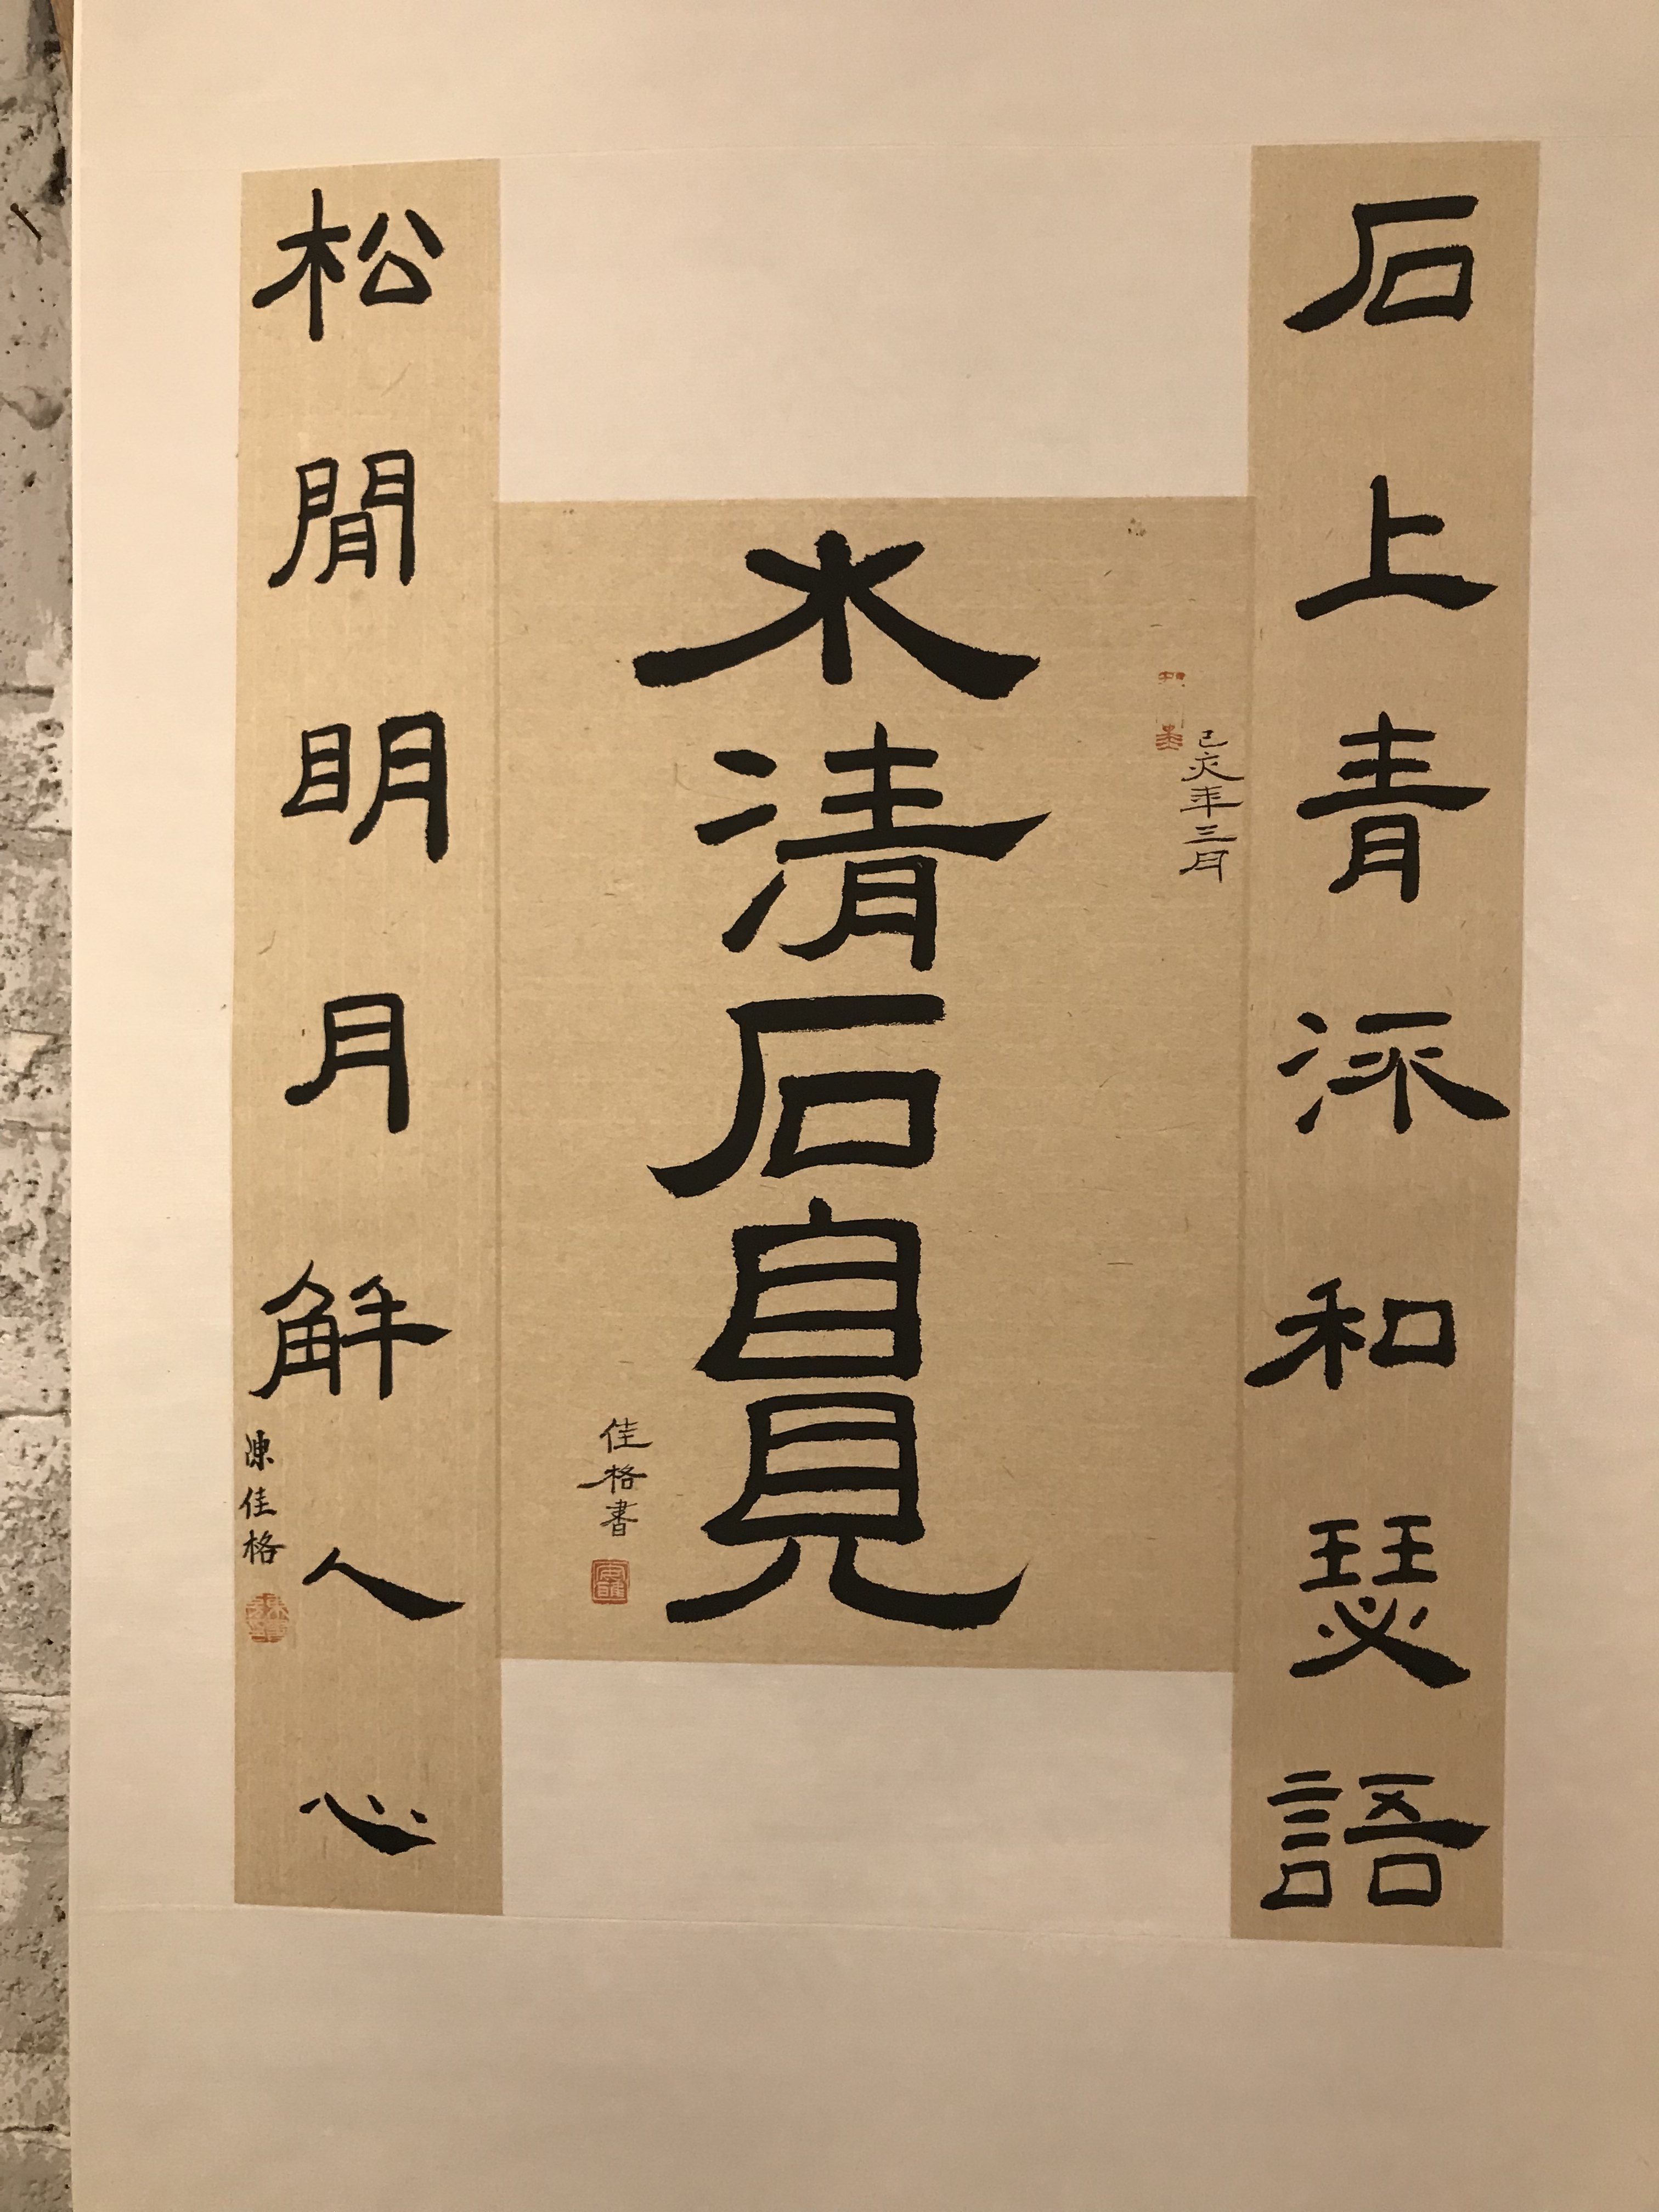 石上青流和瑟語
己亥年三月
水清石自見
佳格書
松閒眀月解人心
陳佳格